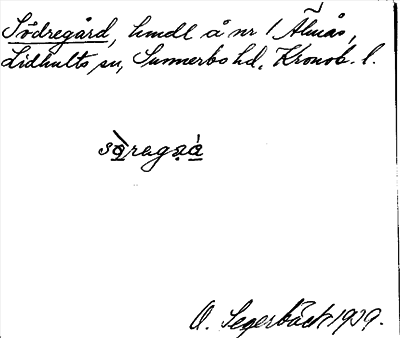 Södregård, hmdl å nr 1 Älmås,
Lidhults sn, Sunnerbo hd, Kronob. l.
sö̀ragɷá
O. Segerbäck 1939.